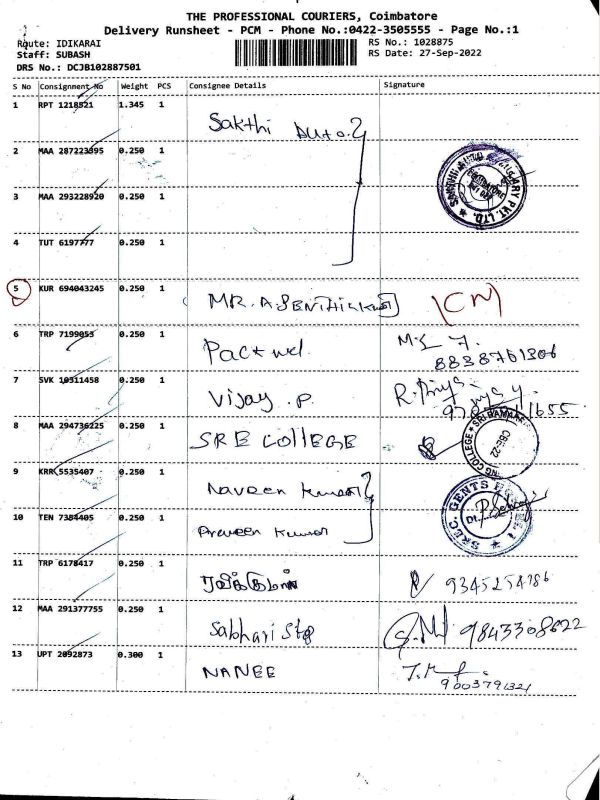 THE PROFESSIONAL COURIERS, Coimbatore
Delivery Runsheet - PCM - Phone No.:0422-3505555 - Page No.:1
Route: IDIKARAI
RS No.: 1028875
Staff: SUBASH
RS Date: 27-Sep-2022
DRS No.: DCJB102887501
S No Consignment No Weight PCS Consignee Details Signature
1 RPT 1218521 1.345 1 Sakthi Auto
2 MAA 287223995 0.250 1
3 MAA 293228920 0.250 1
4 TUT 6197777 0.250 1
5 KUR 694043245 0.250 1 MR. A. SENTHILKUMAR
6 TRP 7199053 0.250 1 8838761306
7 SVK 10311458 0.250 1 Vijay .P R. Priya
8 MAA 294736225 0.250 1 SRE COLLEGE
9 KRR 5535407 0.250 1 Naveen Kumar
10 TEN 7384405 0.250 1 Praveen Kumar
11 TRP 6178417 0.250 1 9345254786
12 MAA 291377755 0.250 1 Sabhari 9843308622
13 UPT 2092873 0.300 1 NANEE 9003791321